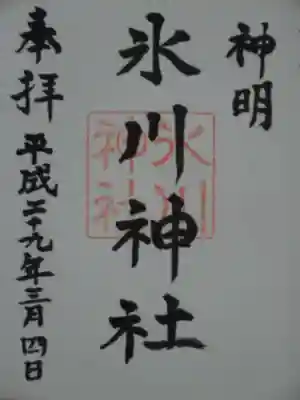 神明
氷川神社
氷川
神社
奉拝
平成二十九年三月四日